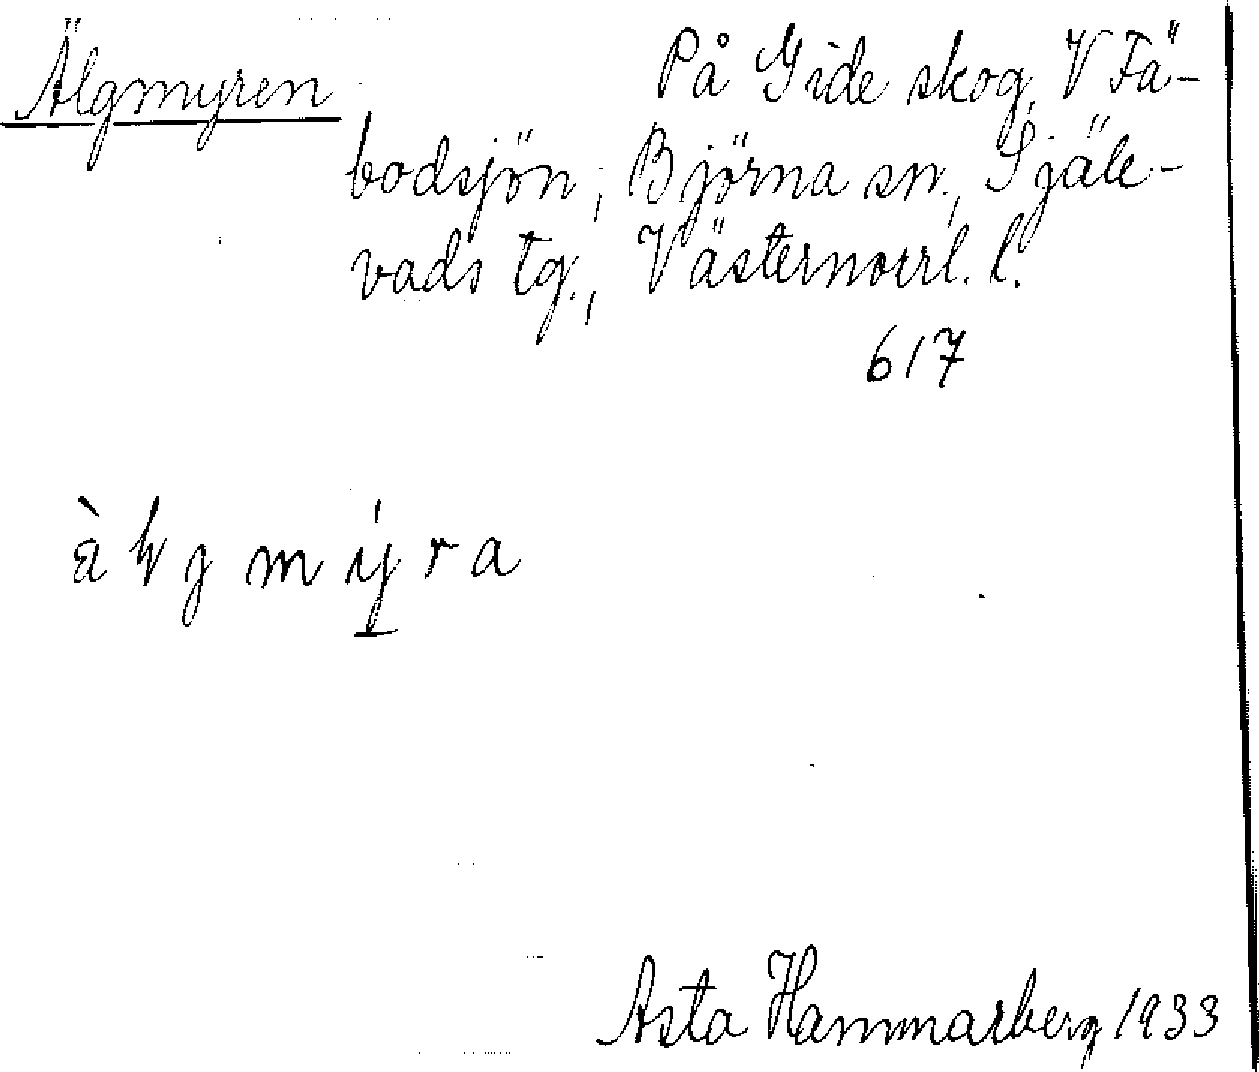 Älgmyren
På Gide skog, V Fä-
bodsjön, Björna sn., Själe-
vads tg., Västernorrl. l.
617
Asta Hammarberg 1933